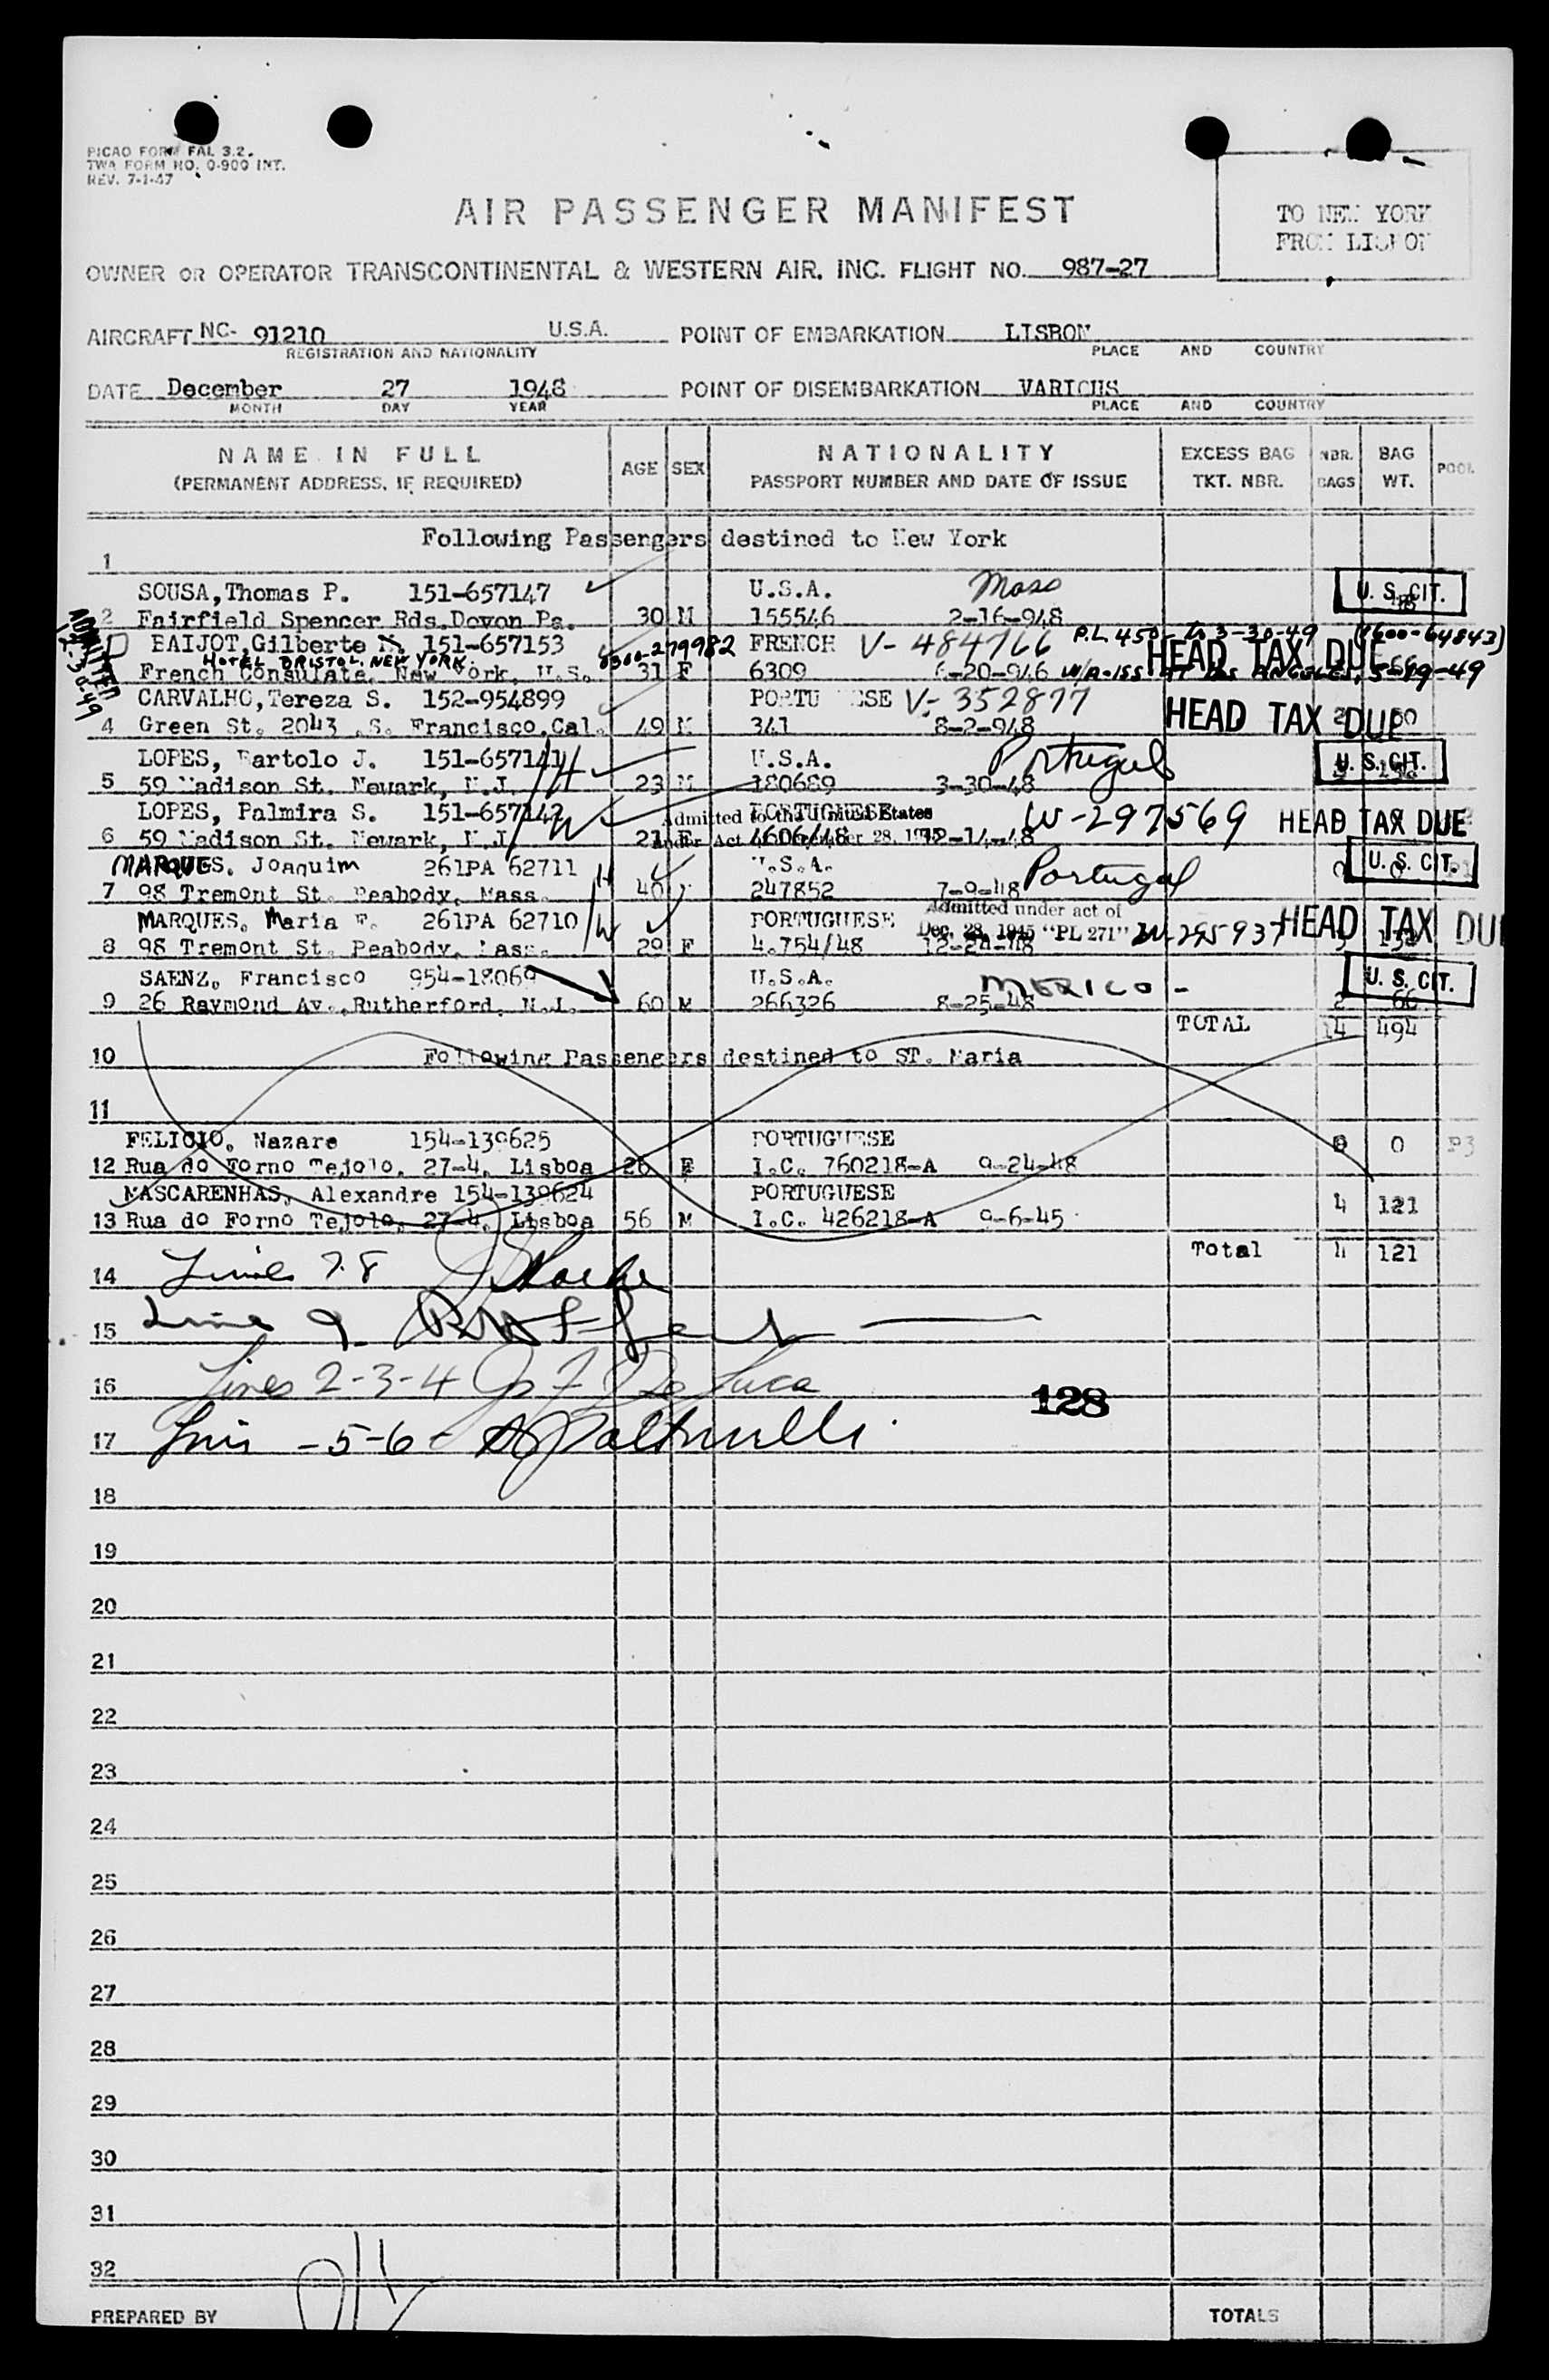 PICAO FORM FAL 3.2.
TWA FORM NO. 0-900 INT.
REV. 7-1-47
AIR PASSENGER MANIFEST
TO NEW YORK
FROM LISBON
OWNER OR OPERATOR TRANSCONTINENTAL & WESTERN AIR. INC. FLIGHT NO. 987-27
AIRCRAFT NC- 91210 U.S.A. POINT OF EMBARKATION LISBON
REGISTRATION AND NATIONALITY PLACE AND COUNTRY
DATE December 27 1948 POINT OF DISEMBARKATION VARIOUS
MONTH DAY YEAR PLACE AND COUNTRY
NAME IN FULL AGE SEX NATIONALITY EXCESS BAG NBR. BAG POOL
(PERMANENT ADDRESS, IF REQUIRED) PASSPORT NUMBER AND DATE OF ISSUE TKT. NBR. BAGS WT.
Following Passengers destined to New York
1
SOUSA,Thomas P. 151-657147 U.S.A. Mass U. S. CIT.
2 Fairfield Spencer Rds.Devon Pa. 30 M 155546 2-16-948
ADMITTED 12-30-49
BAIJOT,Gilberte 151-657153 0300-279982 FRENCH V-484766 P.L. 450- to 3-30-49 (1600-64843)
HOTEL BRISTOL. NEW YORK. HEAD TAX DUE
French Consulate, New York, U.S. 31 F 6309 6-20-946 W/A-ISS. AT LOS ANGELES, 5-19-49
CARVALHO,Tereza S. 152-954899 PORTU ESE V-352877
4 Green St. 2043 .S. Francisco.Cal. 49 341 8-2-948 HEAD TAX DUE
LOPES, Bartolo J. 151-657141 H U.S.A. Portugal
5 59 Madison St. Newark, N.J. 23 M 180689 3-30-48 U. S. CIT.
LOPES, Palmira S. 151-657142 W PORTUGUESE W-297569 HEAD TAX DUE
Admitted to the United States
Under Act of December 28, 1945
6 59 Madison St. Newark, N.J. 21 F 4606/48 12-14-48
MARQUES, Joaquim 261PA 62711 H U.S.A. Portugal U. S. CIT.
7 98 Tremont St. Peabody, Mass. 40 247852 7-9-48 0 0
MARQUES, Maria F. 261PA 62710 W PORTUGUESE Admitted under act of Dec. 28, 1945 "PL 271" W-295937 HEAD TAX DUE
8 98 Tremont St. Peabody, Mass. 29 F 4.754/48
SAENZ, Francisco 954-18069 U.S.A. MEXICO - U. S. CIT.
9 26 Raymond Av.,Rutherford, N.J. 60 M 266326 8-25-48 2 66
TOTAL 14 494
10 Following Passengers destined to ST. Maria
11
FELICIO, Nazare 154-139625 PORTUGUESE 0 0 P3
12 Rua do Forno Tejolo, 27-4, Lisboa 26 F I.C. 760218-A 9-24-48
MASCARENHAS, Alexandre 154-139624 PORTUGUESE 4 121
13 Rua do Forno Tejolo, 27-4, Lisboa 56 M I.C. 426218-A 9-6-45
Total 4 121
14 Lines 7.8
15 Line 9
16 Lines 2-3-4 De Luca
128
17 Lines -5-6-
18
19
20
21
22
23
24
25
26
27
28
29
30
31
32
PREPARED BY TOTALS